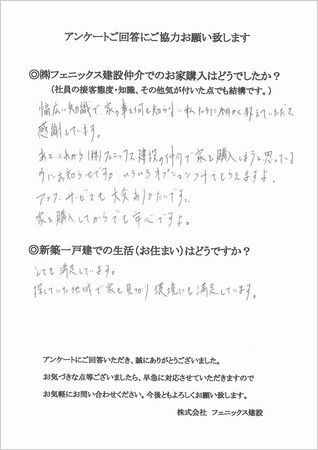 アンケートご回答にご協力お願い致します
◎㈱フェニックス建設仲介でのお家購入はどうでしたか？
（社員の接客態度・知識、その他気が付いた点でも結構です。）
幅広い知識で家の事を何も知らない私たちに細かく教えていただき
感謝しています。
あとこれから(株)フェニックス建設の仲介で家を購入しようと思っている
方にお知らせですが、いろいろオプションつけてもらえますよ。
アフターサービスも大変ありがたいです。
家を購入してからでも安心ですよ。
◎新築一戸建での生活（お住まい）はどうですか？
とても満足しています。
探していた地域で家も見つかり環境にも満足しています。
アンケートにご回答いただき、誠にありがとうございました。
お気づきな点等ございましたら、早急に対応させていただきますので
お気軽にお問い合わせください。今後ともよろしくお願い致します。
株式会社　フェニックス建設